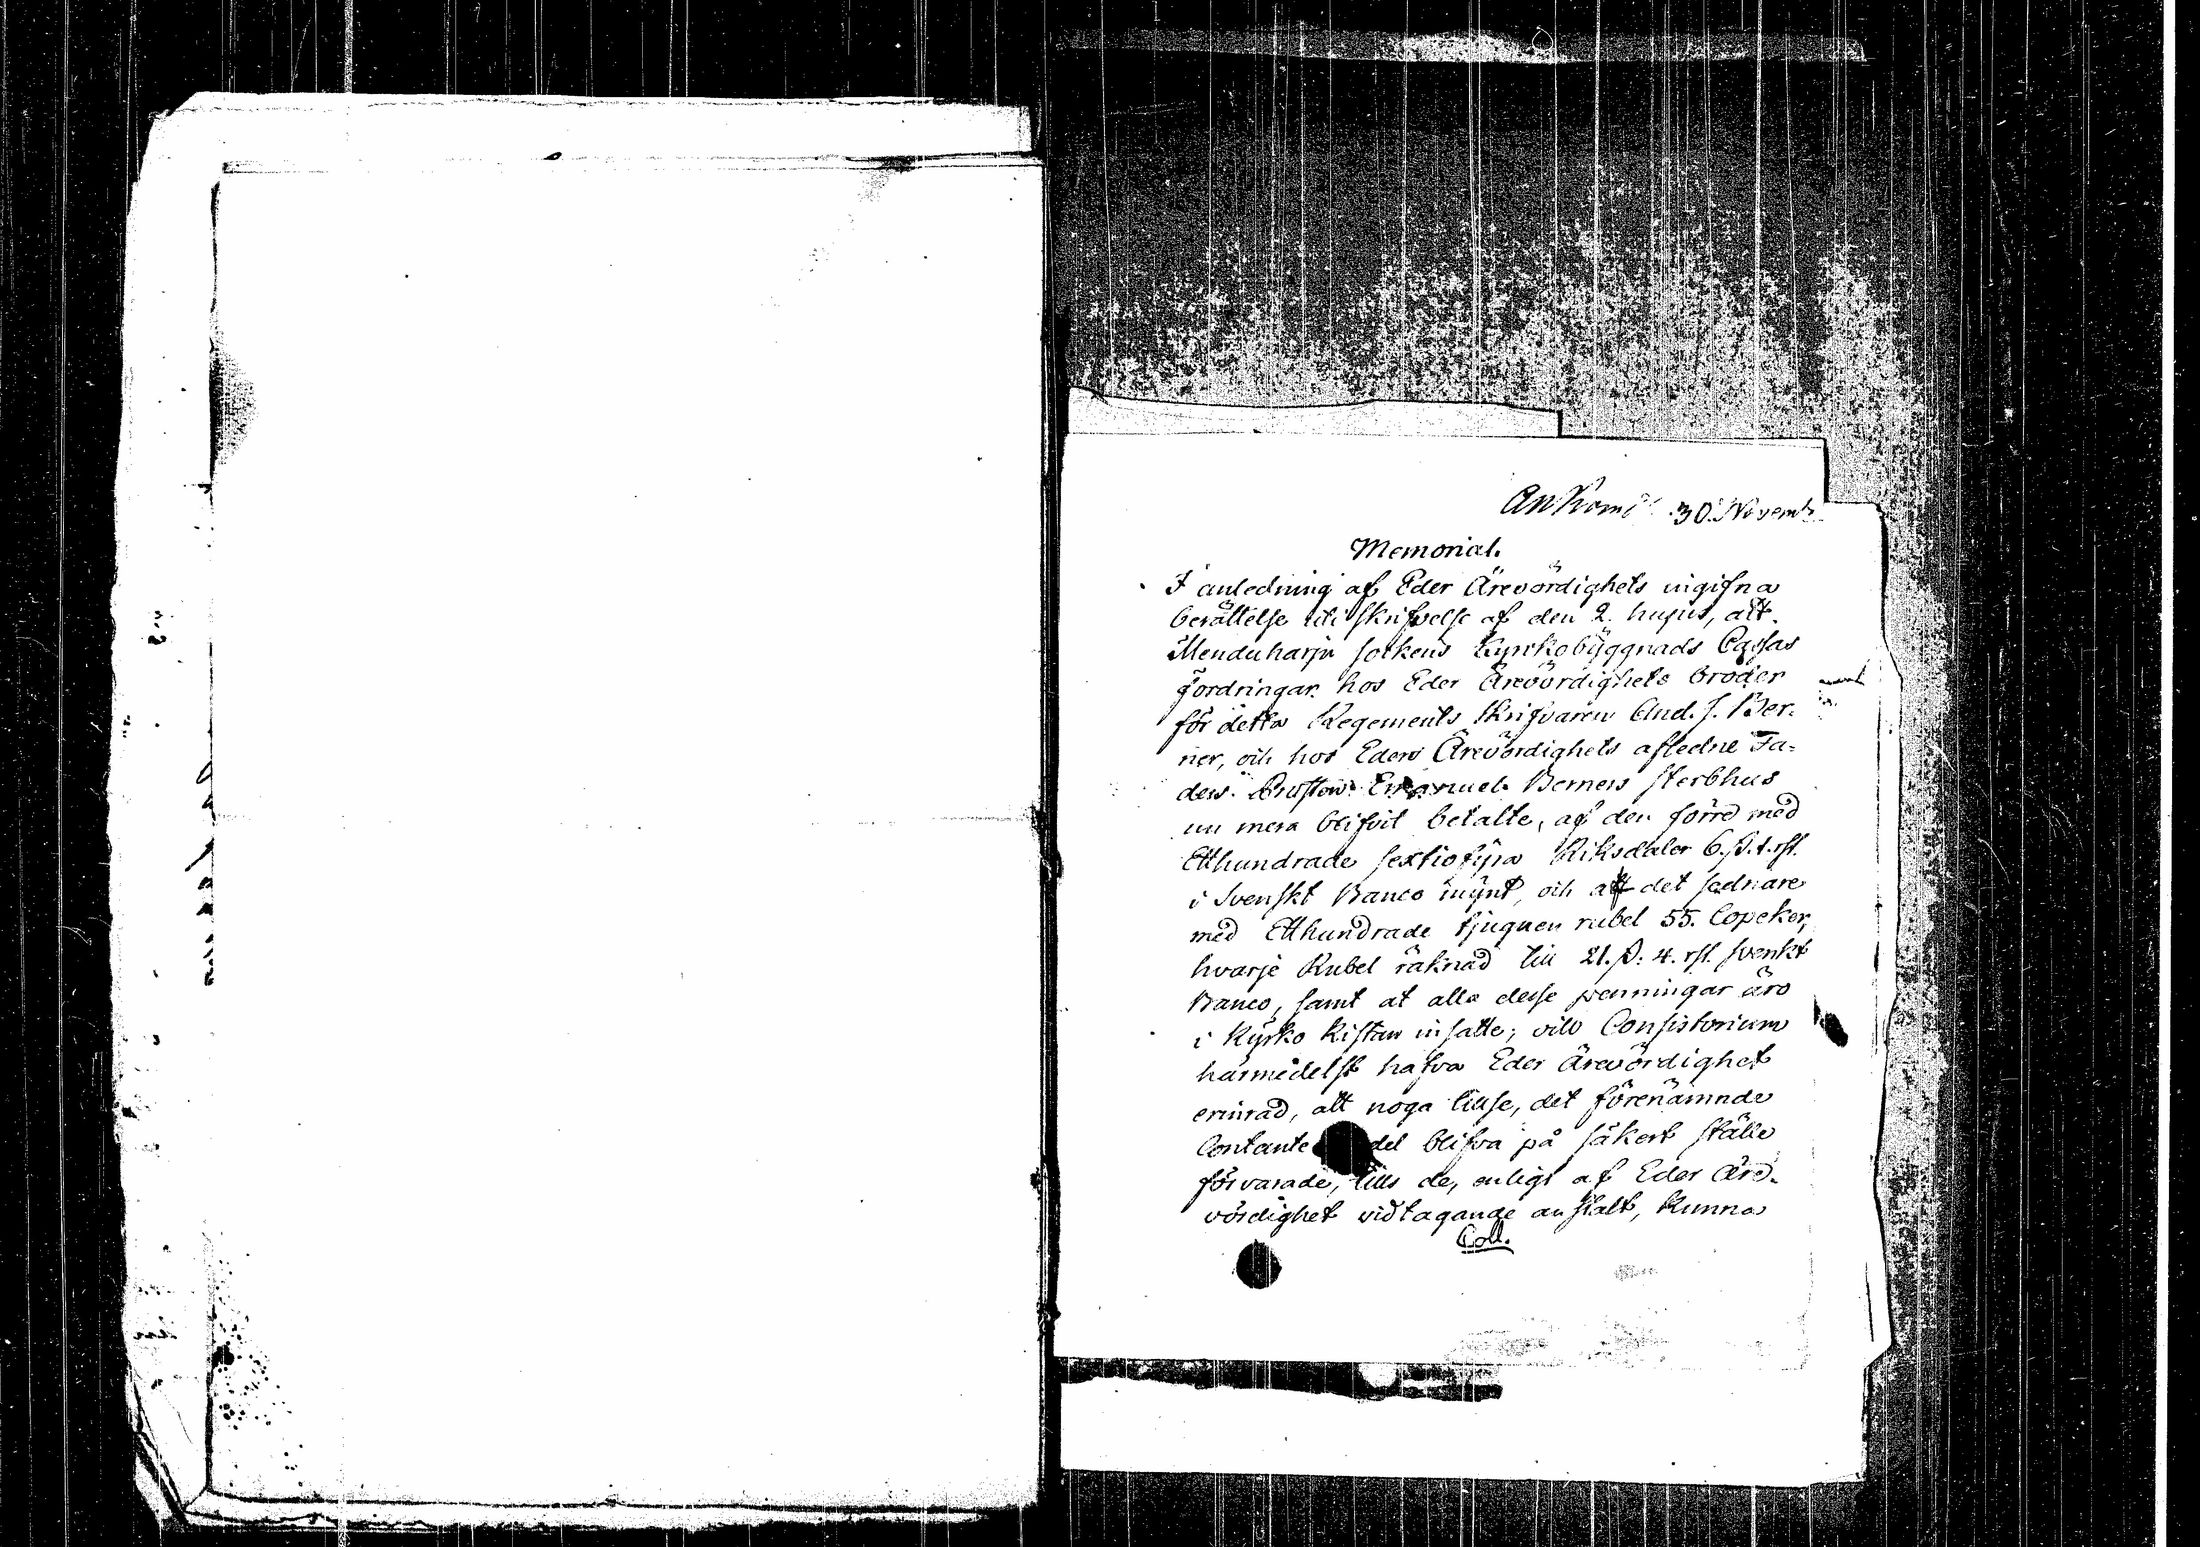 Ankom 30. Novemb
Memorial.
I anledning af Eder Ärevördighets ingifna
berättelse uti skrifvelse af den 2. hujus, att
Menduharju sockens Kyrkobyggnads Cassas
fordringar hos Eder Ärevördighets broder
för detta Regements skrifvaren And. J. Ber-
ner, och hos Eders Ärevördighets afledne Fa-
ders Prosten Emanuel Berners sterbhus
nu mera blifvit betalte, af den förre med
Etthundrade sextiofyra Riksdaler 6. ß. 1. rst.
i Svenskt Banco mynt, och att det sednare
med Etthundrade tjuguen rubel 55. Copeker,
hvarje Rubel räknad till 21. ß: 4. rst. svenkt
Banco, samt at alla desse penningar äro
i Kyrko Kistan insatte; vill Consistorium
härmedelst hafva Eder Ärevördighet
erinrad, att noga tillse, det förenämnde
Contante del blifva på säkert ställe
förvarade, tills de, enligt af Eder Äre-
vördighet vidtagande anstalt, kunna
Coll.